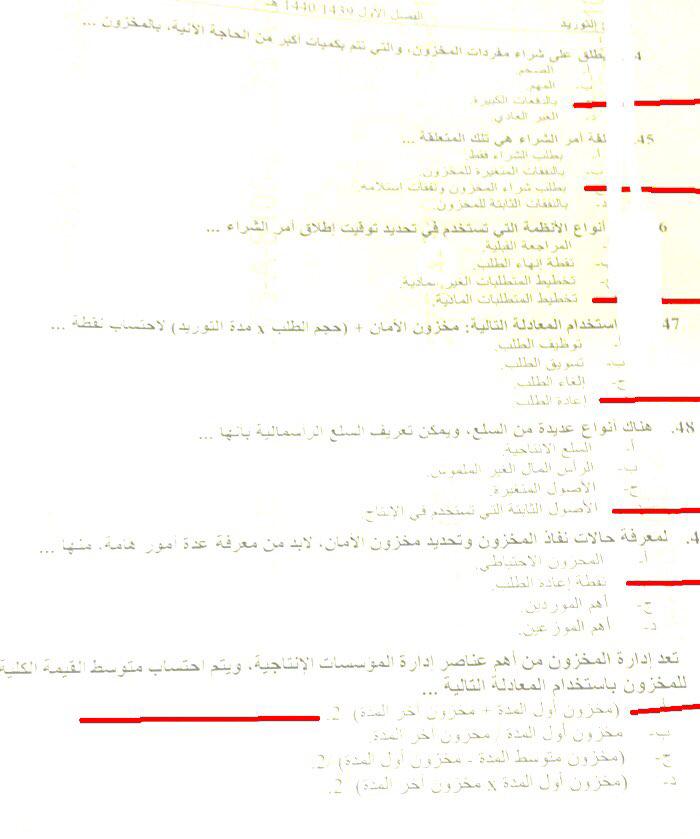 الفصل الأول 1439 1440 هـ
التوريد
4 يطلق على شراء مفردات المخزون، والتي تتم بكميات أكبر من الحاجة الآنية، بالمخزون ...
أ- الضخم.
ب- المهم.
بالدفعات الكبيرة.
د- الغير العادي.
45. لفة أمر الشراء هي تلك المتعلقة ...
أ. بطلب الشراء فقط.
ب- بالنفقات المتغيرة للمخزون.
بطلب شراء المخزون ونفقات استلامه.
د- بالنفقات الثابتة للمخزون.
6 أنواع الأنظمة التي تستخدم في تحديد توقيت إطلاق أمر الشراء ...
- المراجعة القبلية.
ب- نقطة إنهاء الطلب.
تخطيط المتطلبات الغير مادية.
تخطيط المتطلبات المادية.
47 استخدام المعادلة التالية: مخزون الأمان + (حجم الطلب x مدة التوريد) لاحتساب نقطة ...
أ- توظيف الطلب.
ب- تسويق الطلب.
ج- إلغاء الطلب
إعادة الطلب
48. هناك أنواع عديدة من السلع، ويمكن تعريف السلع الرأسمالية بأنها ...
أ. السلع الانتاجية.
ب- الرأس المال الغير الملموس.
ج- الأصول المتغيرة.
الأصول الثابتة التي تستخدم في الإنتاج
4. لمعرفة حالات نفاذ المخزون وتحديد مخزون الأمان، لابد من معرفة عدة أمور هامة، منها ...
أ- المخزون الاحتياطي.
نقطة إعادة الطلب.
ج- أهم الموردين.
د- أهم الموزعين.
تعد إدارة المخزون من أهم عناصر إدارة المؤسسات الإنتاجية، ويتم احتساب متوسط القيمة الكلية
للمخزون باستخدام المعادلة التالية ...
أ- (مخزون أول المدة + مخزون آخر المدة) 2.
ب- مخزون أول المدة / مخزون آخر المدة
ج- (مخزون متوسط المدة - مخزون أول المدة) /2.
د- (مخزون أول المدة x مخزون آخر المدة) 2.